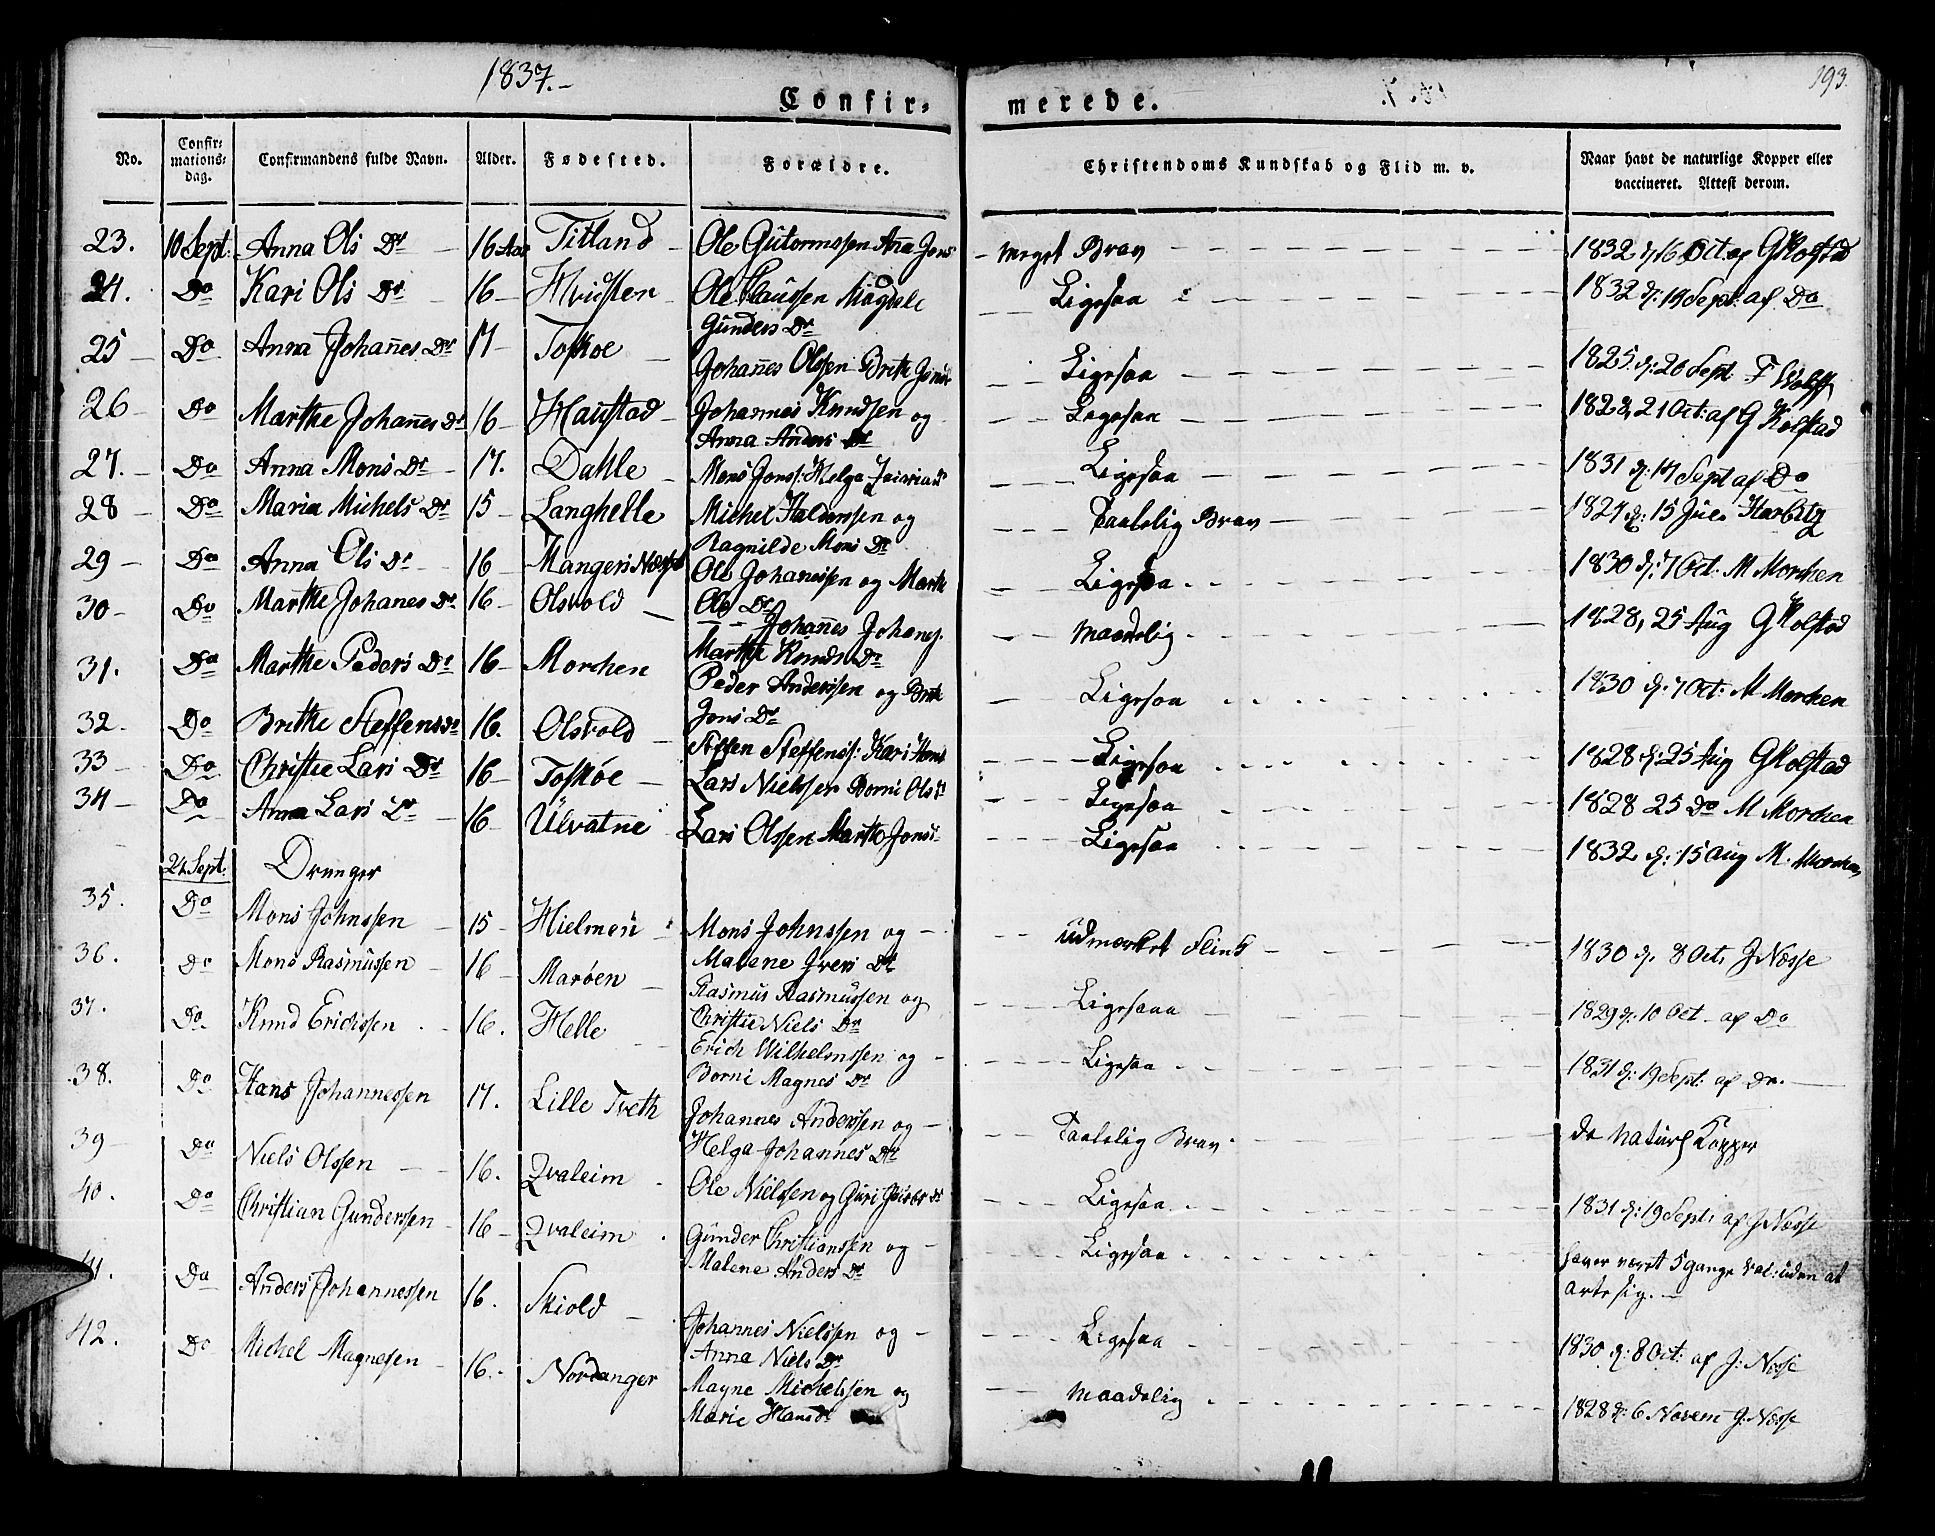 1837.-
193.
Confir- merede.
No. Confirmationsdag. Confirmandens fulde Navn. Alder. Fødested. Forældre. Christendoms Kundskab og Flid m. v. Naar havt de naturlige Kopper eller vaccineret. Attest derom.
23. 10 Sept: Anna Ols Dr 16 Aar Titland Ole Guttormssen Anna Jons meget Brav 1832 d: 16 Oct. af G Kolstad
24. Do Kari Ols Dr 16 Ole Claussen Magdele Gunders Dr Ligesaa 1832 d: 19 Sept: af Do
25 Do Anna Johañes Dr 17 Toskoe Johañes Olssen Brithe Ligesaa 1825 d: 26 Sept F Wolff
26 Do Marthe Johañes Dr 16 Haustad Johannes Knudsen og Anna Anders Dr Ligesaa 1828, 21 Oct: af G Kolstad
27. Do Anna Mons Dr 17. Dahle Mons Jonss: Helga Ligesaa 1831 d: 17 Sept af Do
28 Do Maria Michels Dr 15 Langhelle Michel Haldorssen og Ragnilde Mons Dr Taalelig Brav 1824 d: 15 Juli Harbitz
29 Do Anna Ols Dr 16 Mangers Ole Johanessen og Marthe Ols Dr Ligesaa 1830 d: 7 Oct: M Morchen
30 Do Marthe Johanes Dr 16 Olsvold Johañes Johaness. Marthe Knuds Dr Maadelig 1828, 25 Aug G Kolstad
31. Do Marthe Peders Dr 16 Morchen Peder Anderssen og Brithe Jons Dr Ligesaa 1830 d: 7 Oct: M Morchen
32. Do Brithe Steffens Dr 16. Olsvold Steffen Steffenss: Kari Ligesaa 1828 d: 25 Aug G Kolstad
33 Do Christie Lars Dr 16 Toskøe Lars Nielssen Borni Ols Dr Ligesaa 1828 25 Do M Morchen
34 Do Anna Lars Dr 16 Ulvatne Lars Olssen Marthe Jons Ligesaa 1832 d: 15 Aug M. Morchen
24 Sept: Drenger
35. Do Mons Johnssen 15 Hielmen Mons Johnssen og Malene Ivers Dr Udmærket Flink 1830 d. 8 Oct, J Næsse
36. Do Mons Rasmussen 16 Marøen Rasmus Rasmussen og Christie Niels Dr Ligesaaa 1829 d: 10 Oct af Do
37. Do Knud Erichssen 16. Helle Erich Wilhelmssen og Borni Magnes Dr Ligesaa 1831 d: 19 Sept: af Do.
38. Do Hans Johannessen 17. Lille Tveth Johannes Anderssen og Helga Johannes Dr Taalelig Brav de naturl Kopper
39 Do Niels Olssen 16. Qvaleim Ole Nielssen og Guri Ligesaa 1831 d: 19 Sept: af J Næsse
40. Do Christian Gunderssen 16 Qvaleim Gunder Christianssen og Malene Anders Dr Ligesaa haver været 5 gange vac: uden at arte sig.
41. Do Anders Johannessen 16. Skiold Johannes Nielssen og Anna Niels Dr Ligesaa 1830 d: 8 Oct: af J: Næsse
42. Do Michel Magnesen 16. Nordanger Magne Michelssen og Marie Hans Dr Maadelig 1828 d: 6 Novem J. Næsse